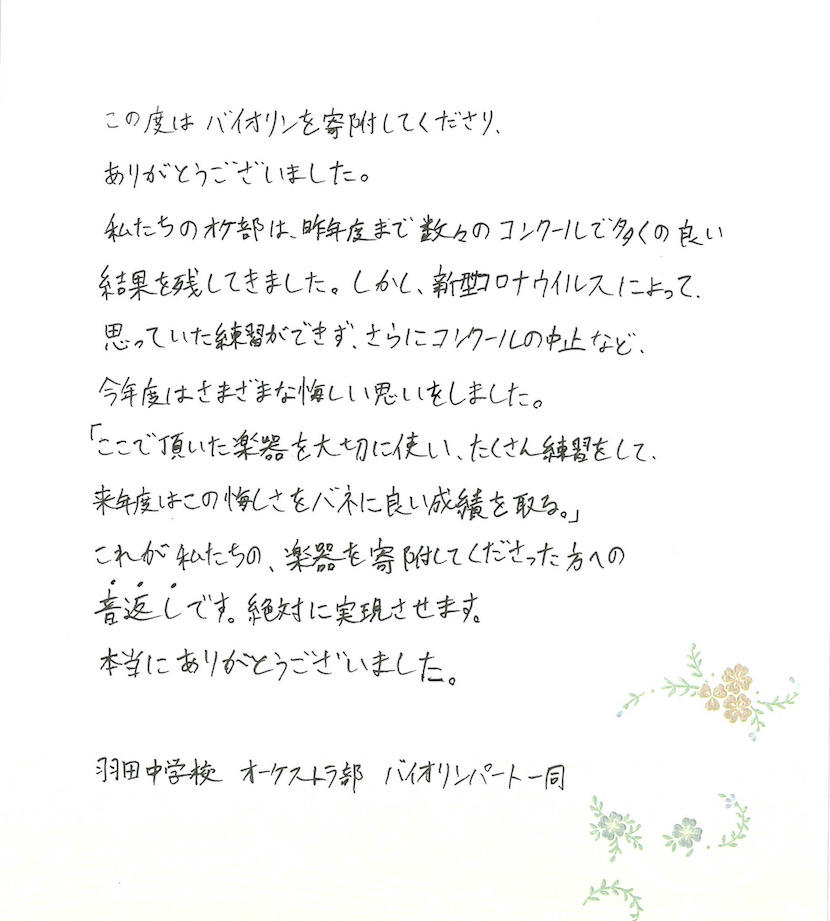 この度は バイオリンを寄附してくださり、
ありがとうございました。
私たちのオケ部は、昨年度まで数々のコンクールで多くの良い
結果を残してきました。しかし、新型コロナウイルスによって、
思っていた練習ができず、さらにコンクールの中止など、
今年度はさまざまな悔しい思いをしました。
「ここで頂いた楽器を大切に使い、たくさん練習をして、
来年度はこの悔しさをバネに良い成績を取る。」
これが私たちの、楽器を寄附してくださった方への
音返しです。絶対に実現させます。
本当にありがとうございました。
羽田中学校 オーケストラ部 バイオリンパート一同